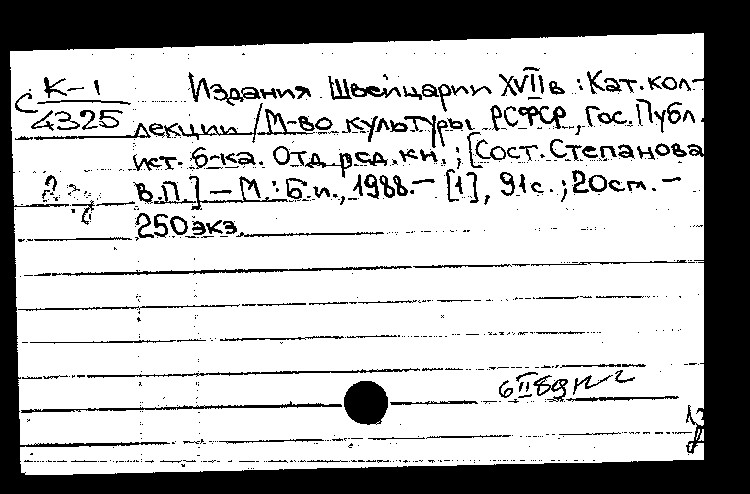 С К-1
4325
Издания Швейцарии XVII в : Кат. кол-
лекции / М-во культуры РСФСР, Гос. Публ.
ист. б-ка. Отд редк.кн.; [Сост. Степанова
В.П.] — М.: Б.и., 1988. — [1], 91с.; 20см. —
250экз.
6 II 89